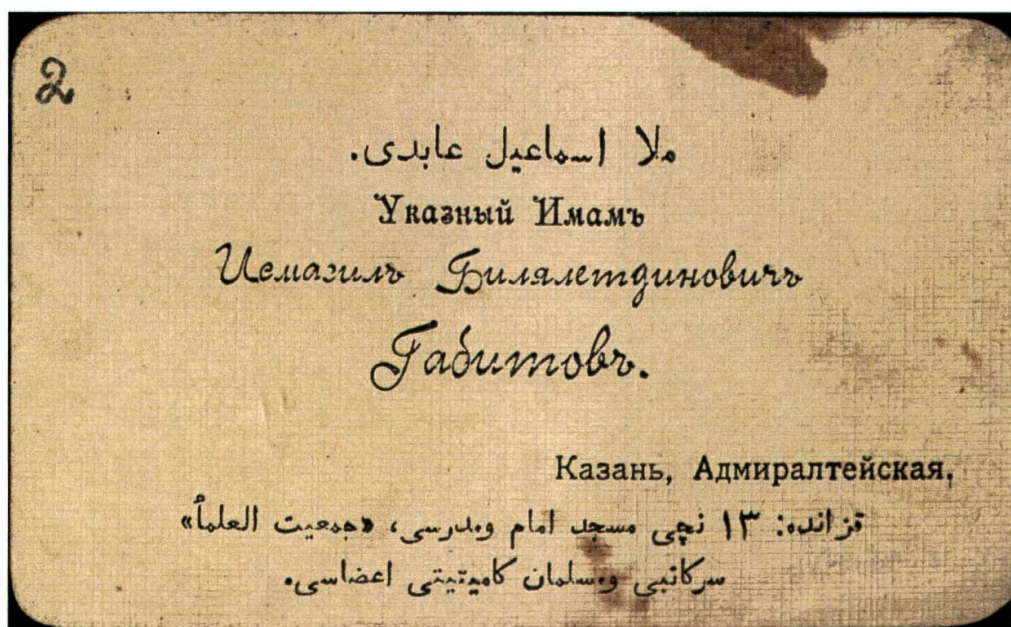 2
ملا اسماعيل عابدى.
Указный Имамъ
Исмагилъ Билялетдиновичъ
Габитовъ.
Казань, Адмиралтейская,
قزانده: ١٣ نچى مسجد امام ومدرسى، «جمعيت العلمأ»
سركاتبى ومسلمان كاميتيتى اعضاسى.